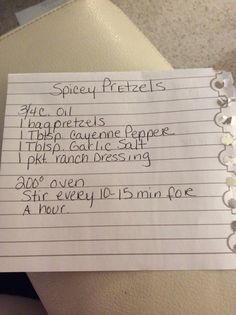 Spicey Pretzels
3/4 c. Oil
1 bag pretzels
1 Tblsp. Cayenne Pepper
1 Tblsp. Garlic Salt
1 pkt ranch Dressing
200° oven
Stir every 10-15 min for
A hour